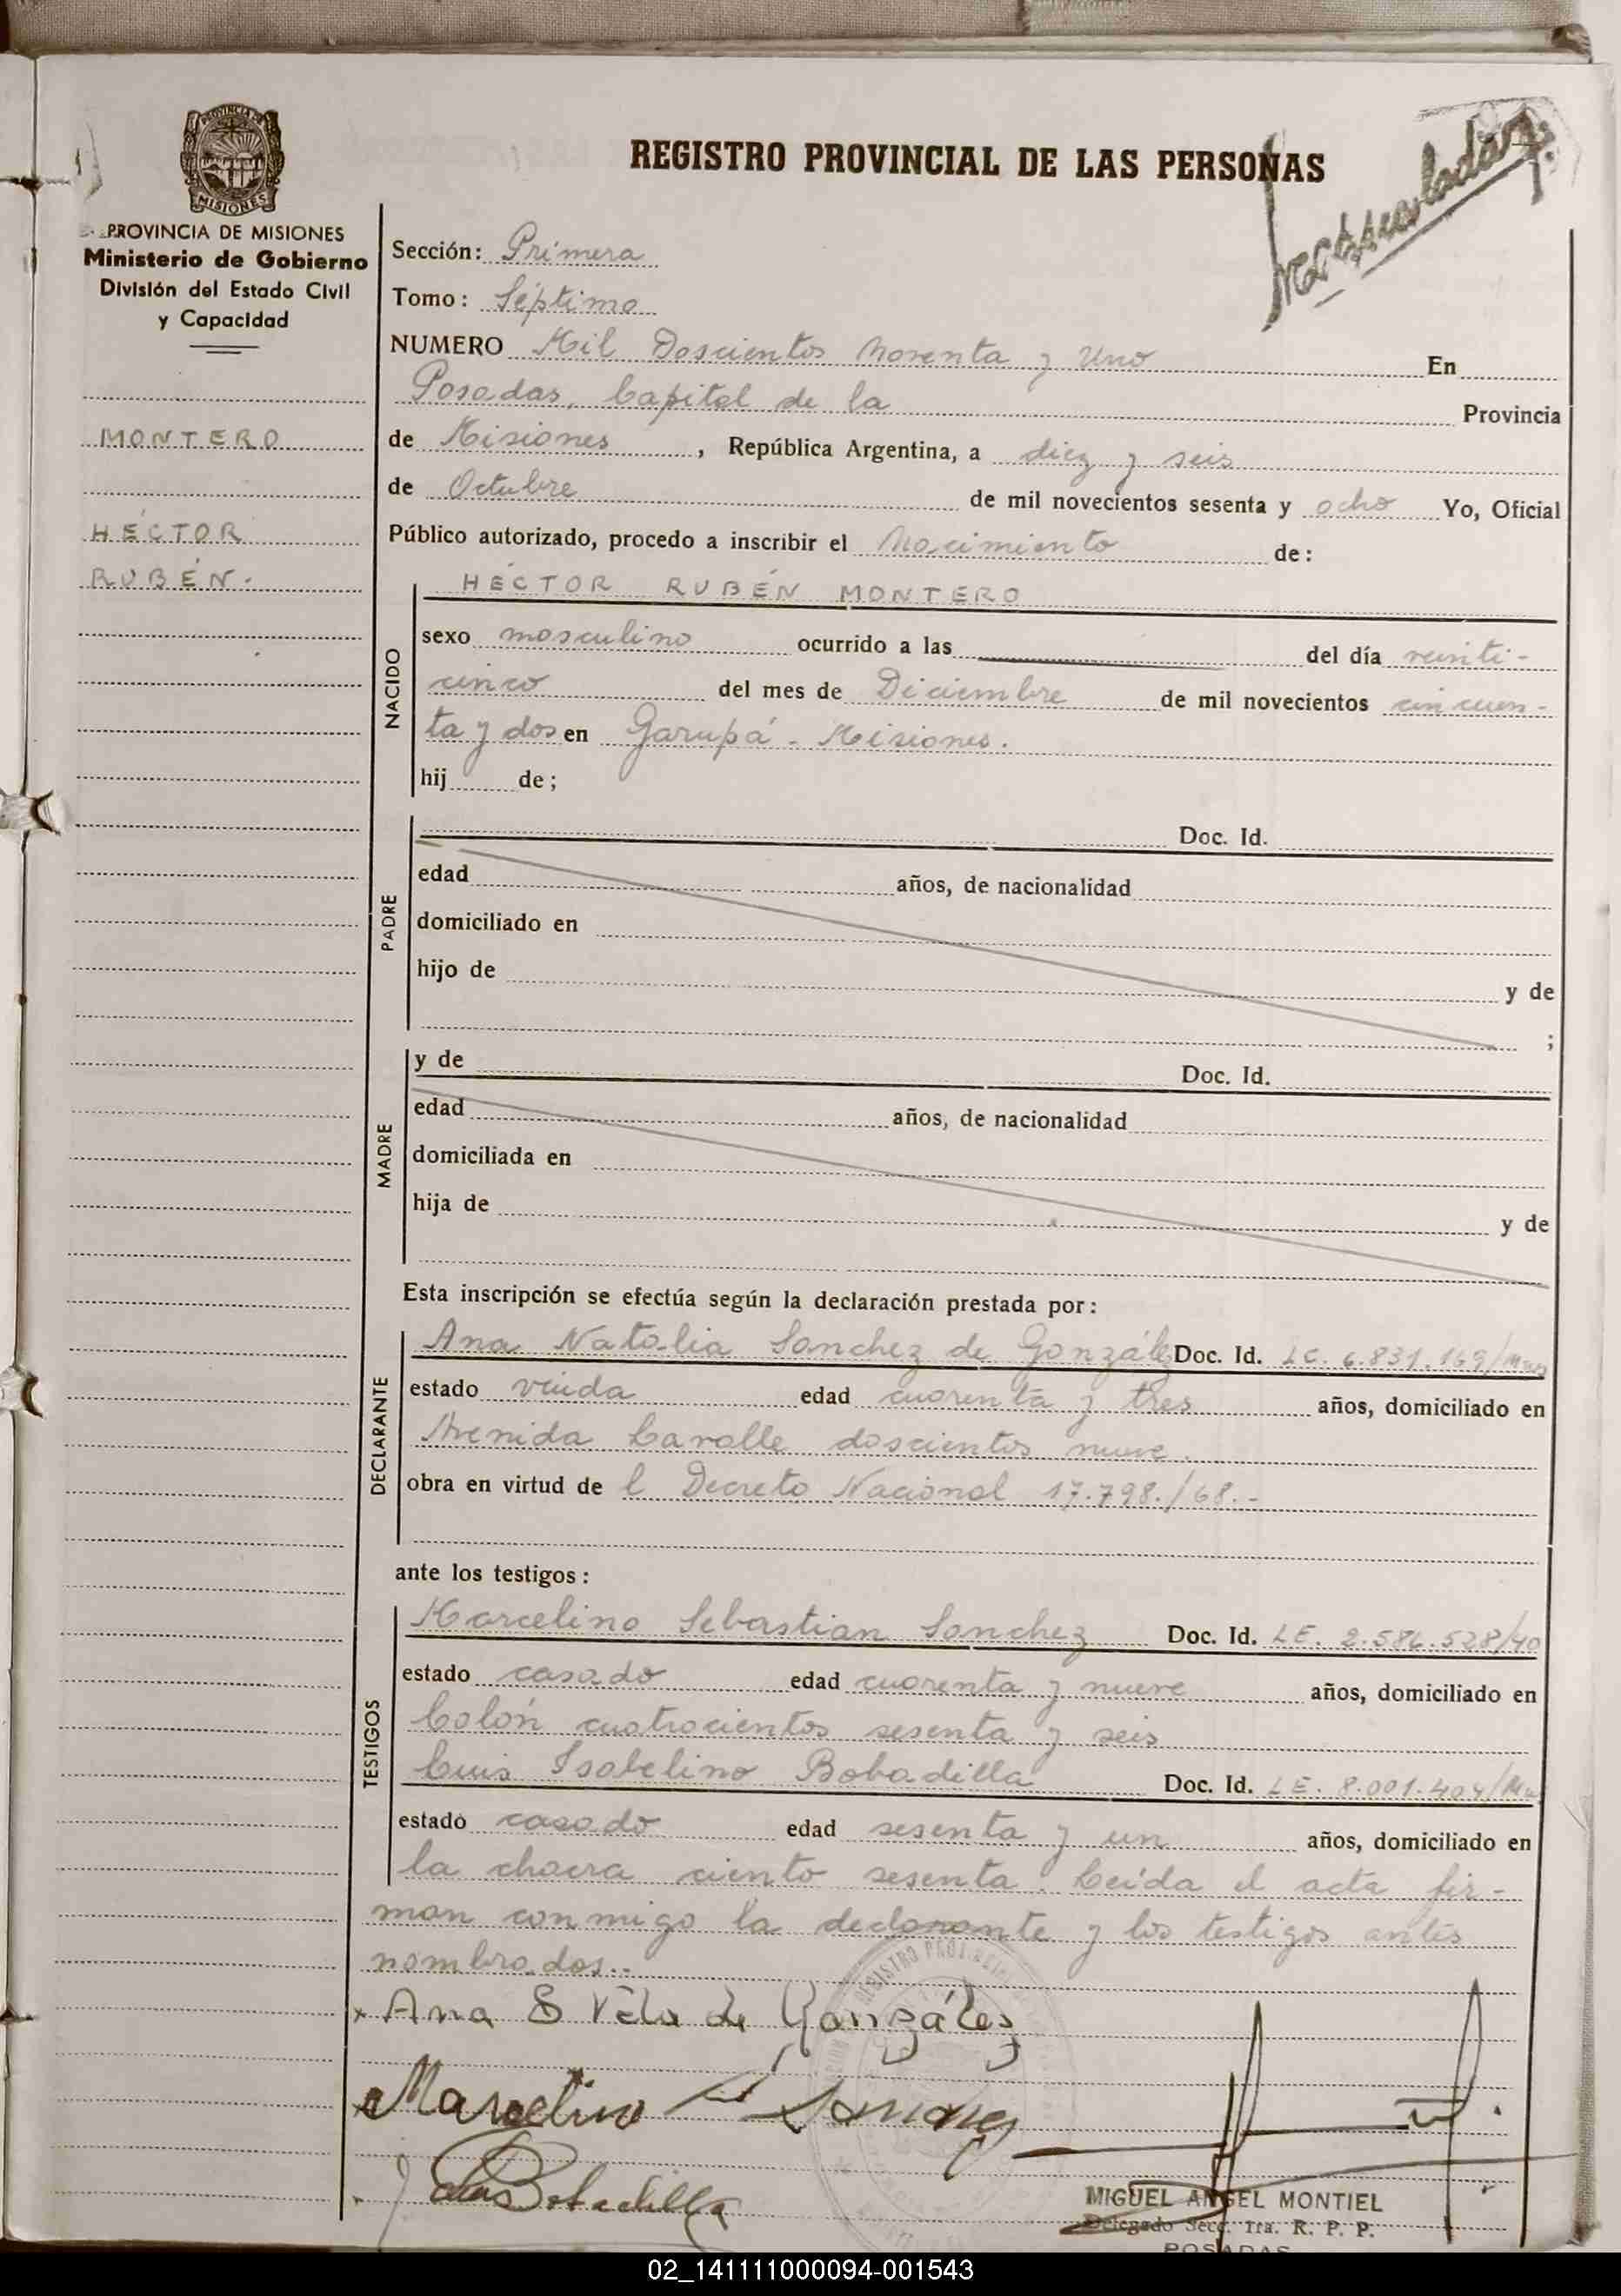 REGISTRO PROVINCIAL DE LAS PERSONAS
PROVINCIA DE
MISIONES
PROVINCIA DE MISIONES
Ministerio de Gobierno
División del Estado Civil
y Capacidad
MONTERO
HÉCTOR
RUBÉN.
Sección: Primera
Tomo: Séptimo
NUMERO Mil Doscientos Noventa y Uno En
Posadas, Capital de la Provincia
de Misiones, República Argentina, a diez y seis
de Octubre de mil novecientos sesenta y ocho Yo, Oficial
Público autorizado, procedo a inscribir el Nacimiento de:
NACIDO
HÉCTOR RUBÉN MONTERO
sexo masculino ocurrido a las del día veinti-
cinco del mes de Diciembre de mil novecientos cincuen-
ta y dos en Garupá - Misiones.
hij de;
PADRE
Doc. Id.
edad años, de nacionalidad
domiciliado en
hijo de y de
;
MADRE
y de Doc. Id.
edad años, de nacionalidad
domiciliada en
hija de y de
Esta inscripción se efectúa según la declaración prestada por:
DECLARANTE
Ana Natalia Sanchez de González Doc. Id. LC. 6.831.169/
estado viuda edad cuarenta y tres años, domiciliado en
Avenida Lavalle doscientos nueve.
obra en virtud de l Decreto Nacional 17.798./68.-
ante los testigos:
TESTIGOS
Marcelino Sebastian Sanchez Doc. Id. LE. 2.586.528/40
estado casado edad cuarenta y nueve años, domiciliado en
Colón cuatrocientos sesenta y seis
Luis Isabelino Bobadilla Doc. Id. LE. 8.001.404/
estado casado edad sesenta y un años, domiciliado en
la chacra ciento sesenta. Leída el acta fir-
man conmigo la declarante y los testigos antes
nombrados.-
Ana S Vda de González
Marcelino S Sanchez
Luis Bobadilla
MIGUEL ANGEL MONTIEL
Delegado Secc. 1ra. R. P. P.
POSADAS
02_141111000094-001543